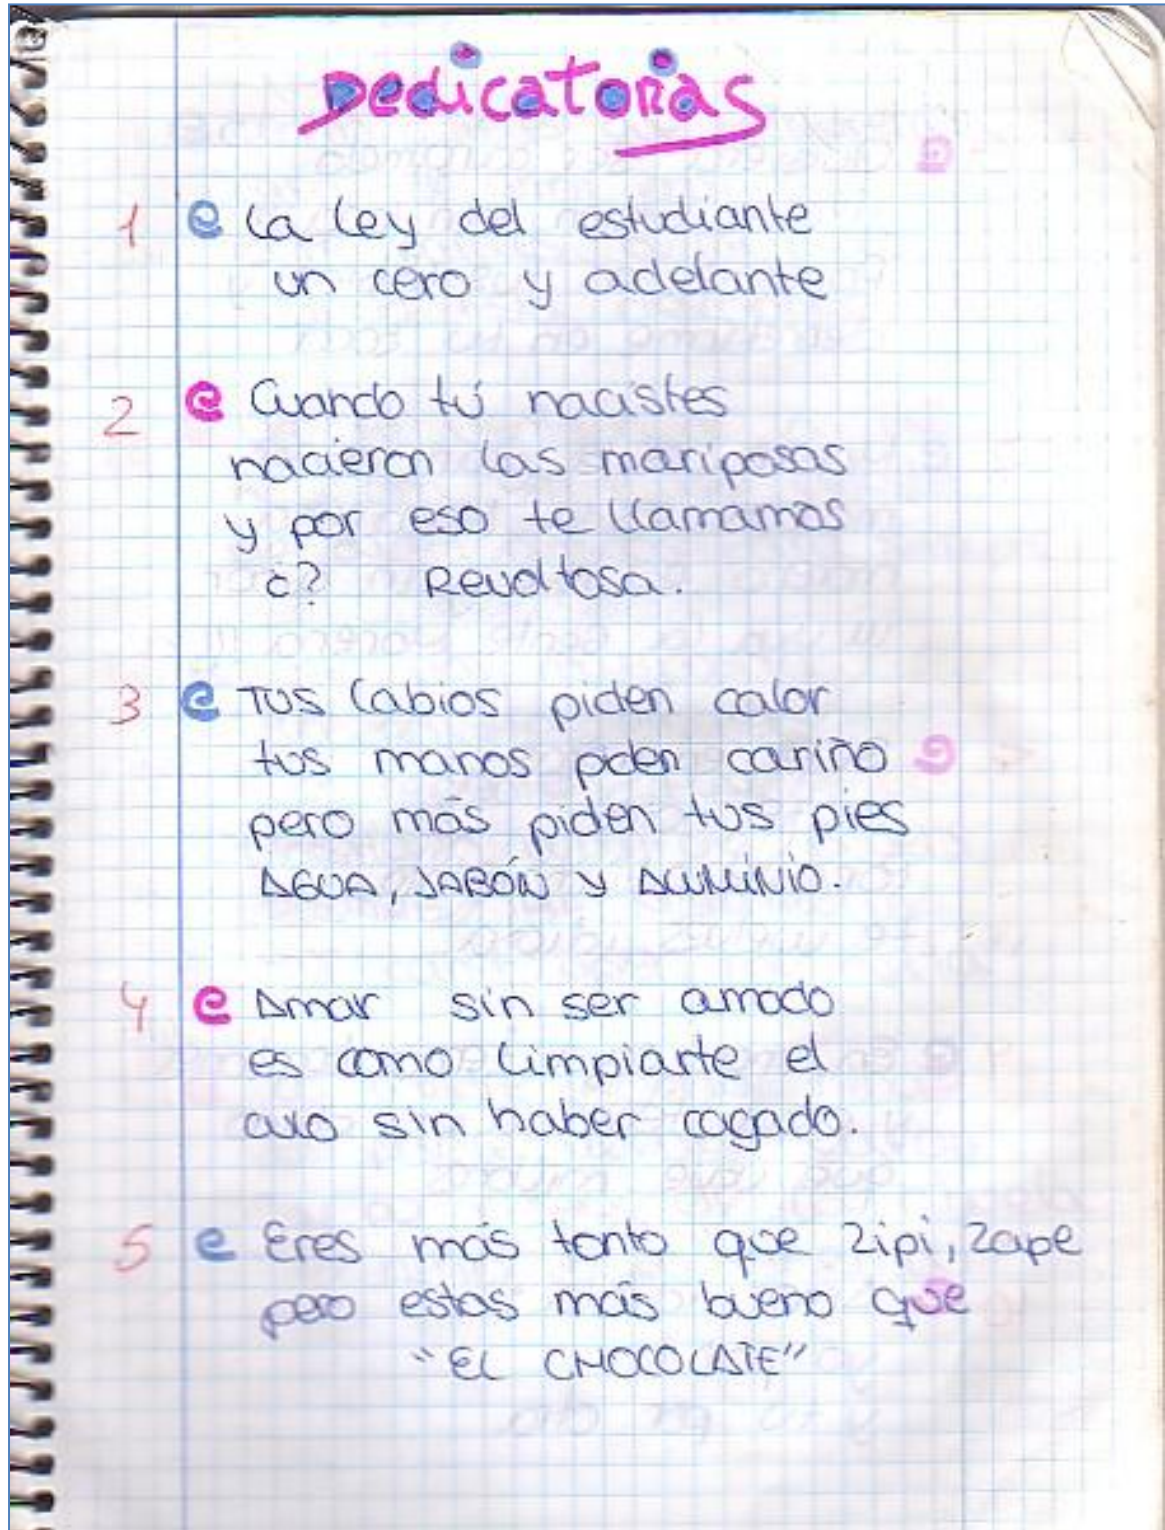 Dedicatorias
1 La ley del estudiante
un cero y adelante
2 Cuando tú nacistes
nacieron las mariposas
y por eso te llamamos
¿? Revoltosa.
3 Tus labios piden calor
tus manos piden cariño
pero más piden tus pies
AGUA, JABÓN Y ALUMINIO.
4 Amar sin ser amado
es como limpiarte el
culo sin haber cagado.
5 Eres más tonto que Zipi, Zape
pero estas más bueno que
"EL CHOCOLATE"